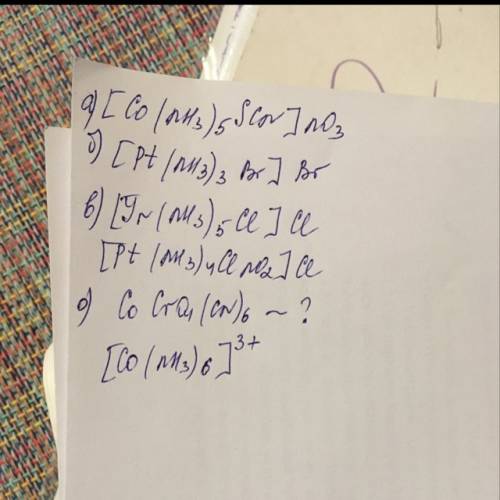 а) [Co(NH3)5SCN]NO3
б) [Pt(NH3)3Br]Br
в) [Ir(NH3)5Cl]Cl
[Pt(NH3)4ClNO2]Cl
(CN)6 ~ ?
[Co(NH3)6]3+